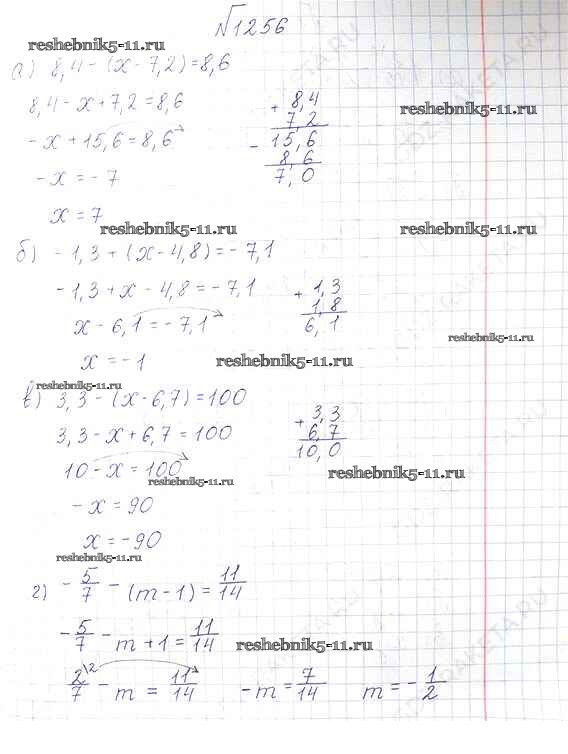 №1256
reshebnik5-11.ru
а) 8,4-(x-7,2)=8,6
8,4-x+7,2=8,6
-x+15,6=8,6
-x=-7
x=7
+ 8,4
7,2
- 15,6
8,6
7,0
reshebnik5-11.ru
reshebnik5-11.ru
reshebnik5-11.ru
б) -1,3+(x-4,8)=-7,1
-1,3+x-4,8=-7,1
x-6,1=-7,1
x=-1
+ 1,3
1,8
6,1
reshebnik5-11.ru
reshebnik5-11.ru
reshebnik5-11.ru
в) 3,3-(x-6,7)=100
3,3-x+6,7=100
10-x=100
-x=90
x=-90
+ 3,3
6,7
10,0
reshebnik5-11.ru
reshebnik5-11.ru
reshebnik5-11.ru
г) -5/7-(m-1)=11/14
-5/7-m+1=11/14
reshebnik5-11.ru
2\2/7-m=11/14 -m=7/14 m=-1/2
GDZ-RAKETA.RU